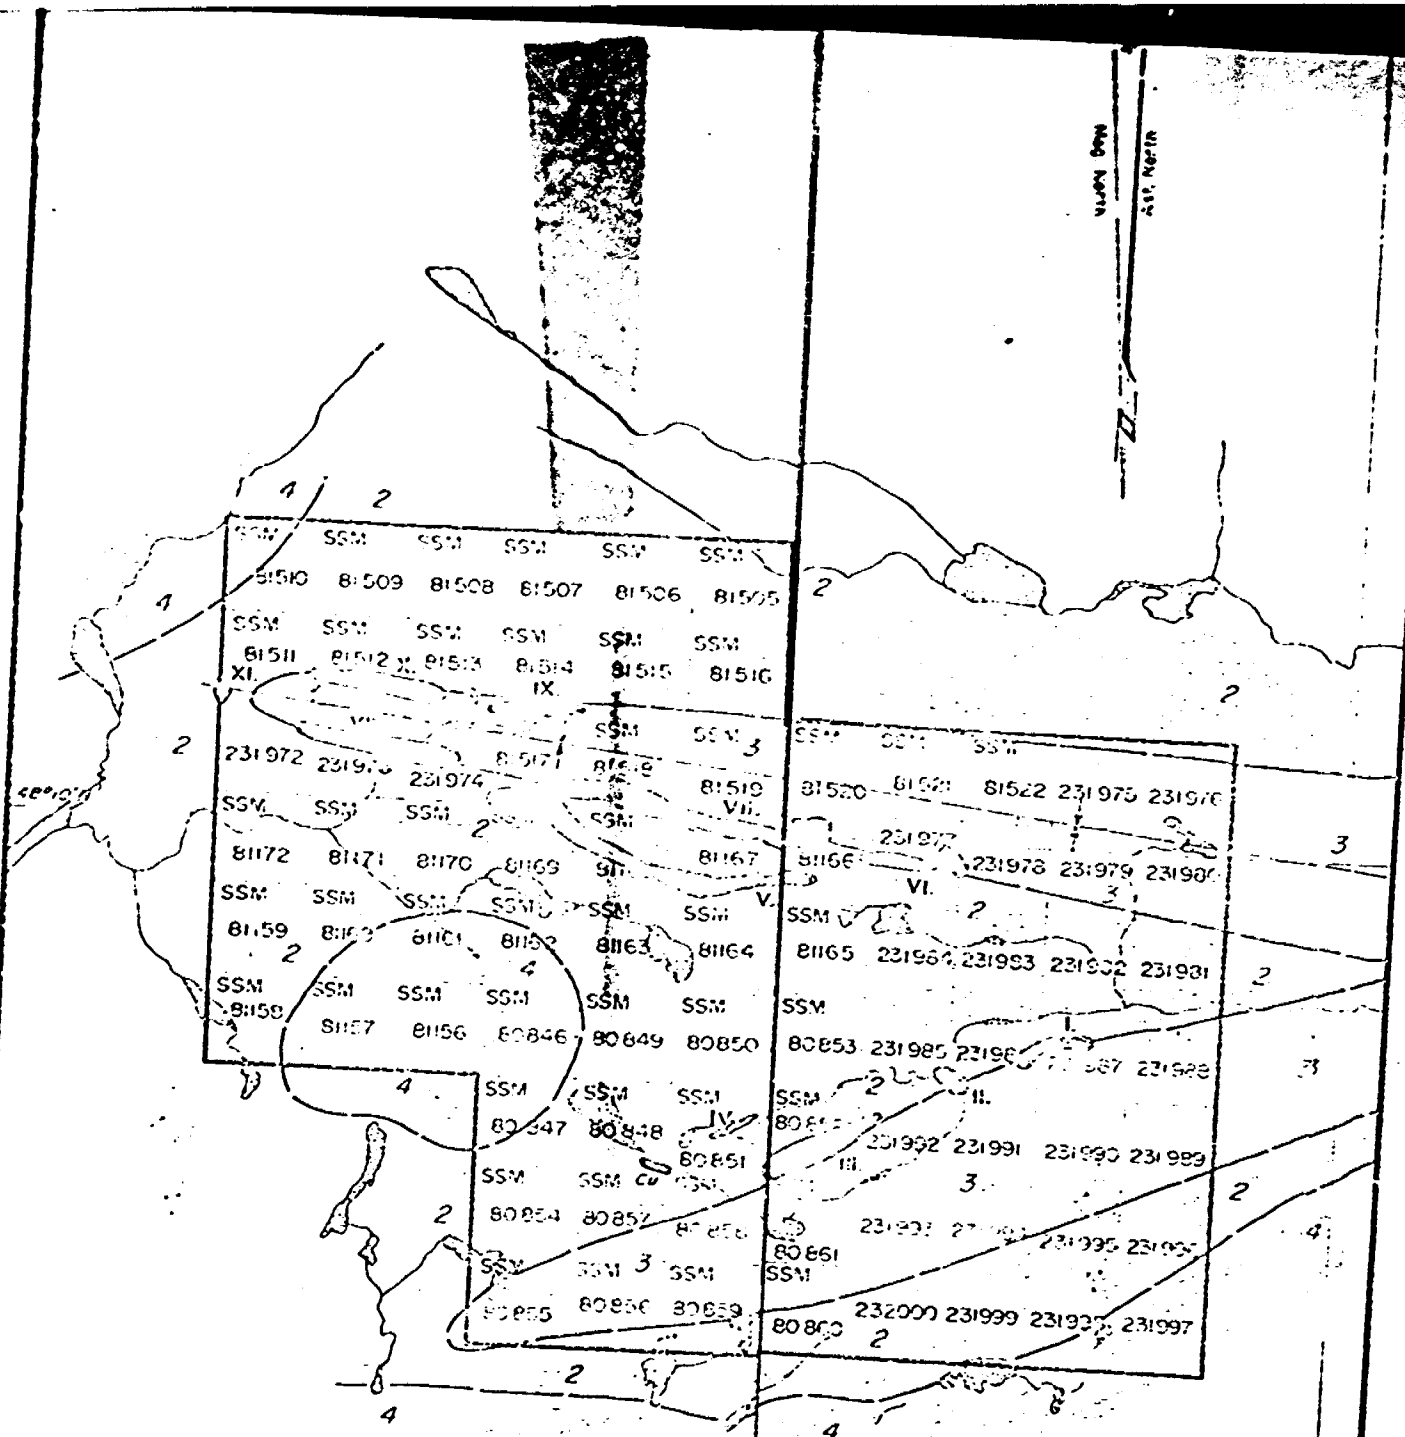 Mag North
Ast. North
4 2
SSM SSM SSM SSM SSM SSM
81510 81509 81508 81507 81506 81505 2
4
SSM SSM SSM SSM SSM SSM
81511 81512 X. 81513 81514 81515 81516
XI. IX.
2
2 SSM SSM 3 SSM SSM SSM
231972 231973 231974 81517
81519 81520 81521 81522 231975 231976
VII.
48°10'N
SSM SSM SSM 2 SSM
231977 3
81172 81171 81170 81169 81167 81166 231978 231979 231980
VI. 3
SSM SSM SSM SSM SSM SSM V. SSM 2
81159 81160 81161 81162 81163 81164 81165 231984 231983 231982 231981
2 4 2
SSM SSM SSM SSM SSM SSM SSM
81158 81157 81156 80846 80849 80850 80853 231985 I. 231988
3
4 SSM SSM SSM SSM 2 II.
80847 80848 IV. 231992 231991 231990 231989
80851 III.
SSM SSM Cu 3 2
2 80854 80857 80858 231993 231995
80861 4
SSM SSM 3 SSM SSM
80855 80856 80859 80860 232000 231999 231998 231997
2
2
4 4